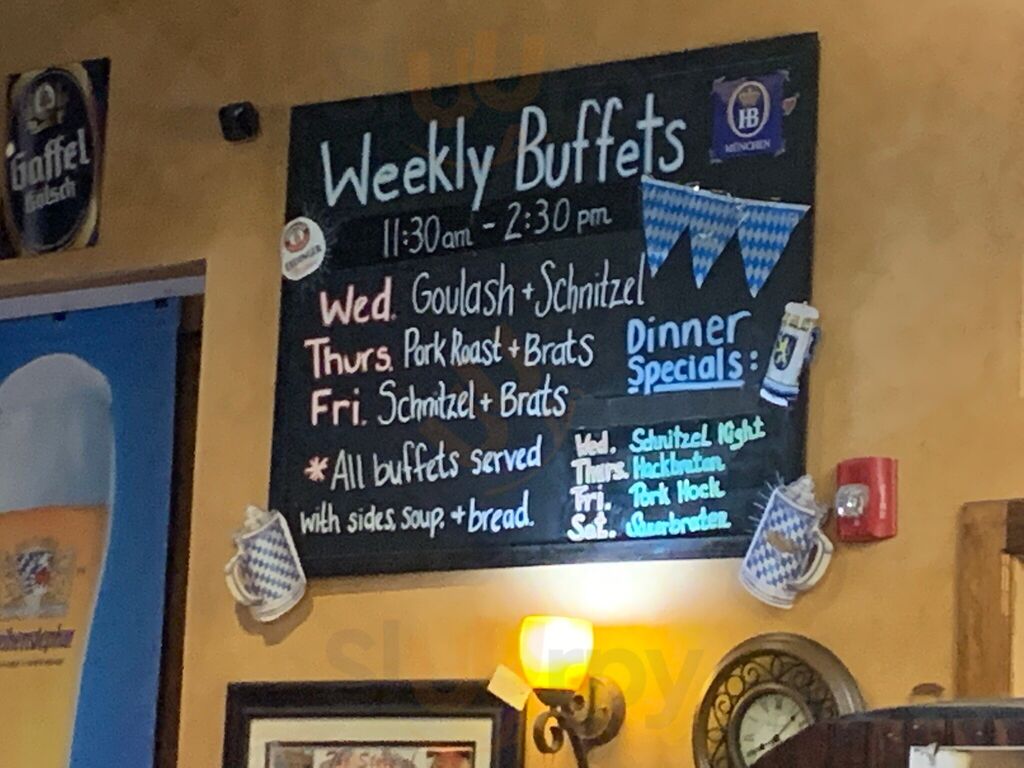 Gaffel
Kölsch
Weekly Buffets
HB
MÜNCHEN
11:30am - 2:30 pm
ERDINGER
Wed. Goulash + Schnitzel
Thurs. Pork Roast + Brats
Fri. Schnitzel + Brats
*All buffets served
with sides, soup, + bread.
Dinner
Specials:
Wed. Schnitzel Night
Thurs. Hackbraten
Fri. Pork Hock
Sat. Sauerbraten
Slurpy